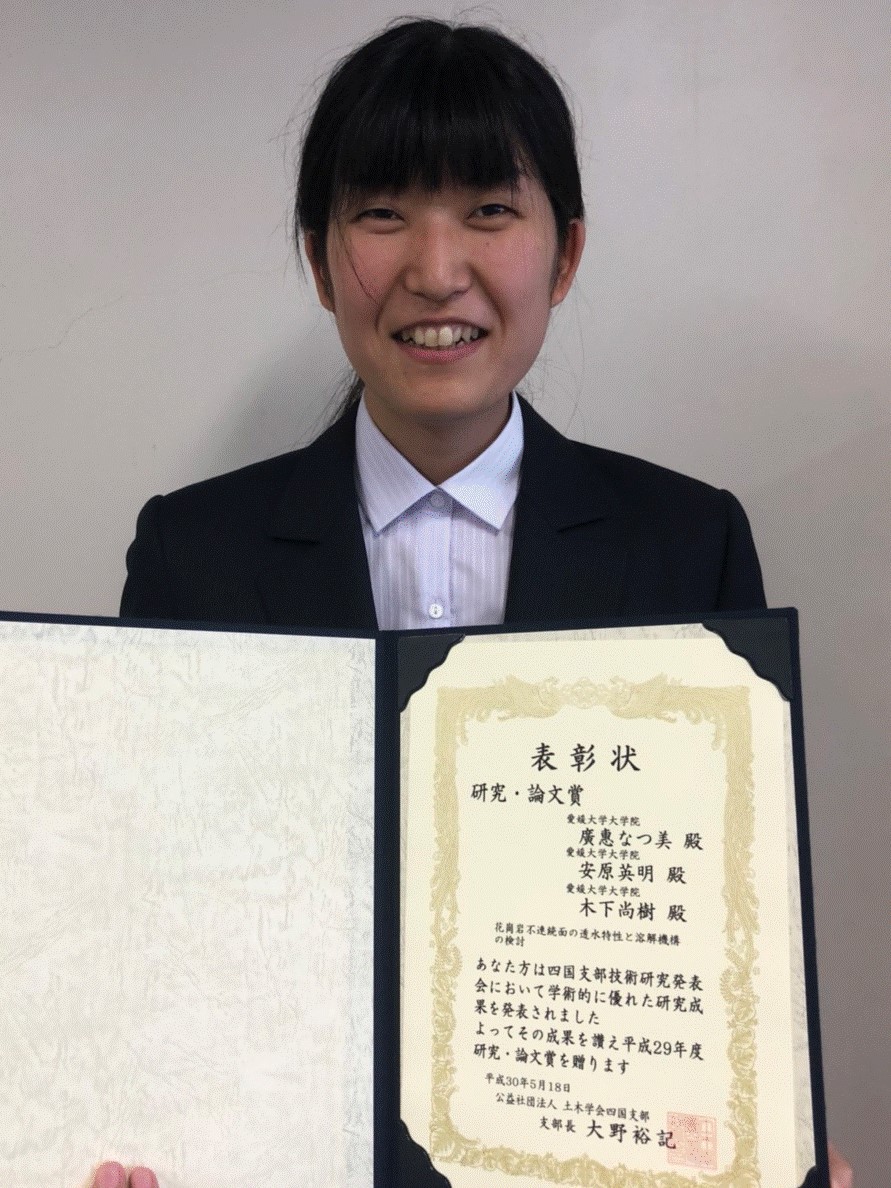 表彰状
研究・論文賞
愛媛大学大学院
廣惠なつ美 殿
愛媛大学大学院
安原英明 殿
愛媛大学大学院
木下尚樹 殿
花崗岩不連続面の透水特性と溶解機構
の検討
あなた方は四国支部技術研究発表
会において学術的に優れた研究成
果を発表されました
よってその成果を讃え平成29年度
研究・論文賞を贈ります
平成30年5月18日
公益社団法人 土木学会四国支部
支部長 大野裕記